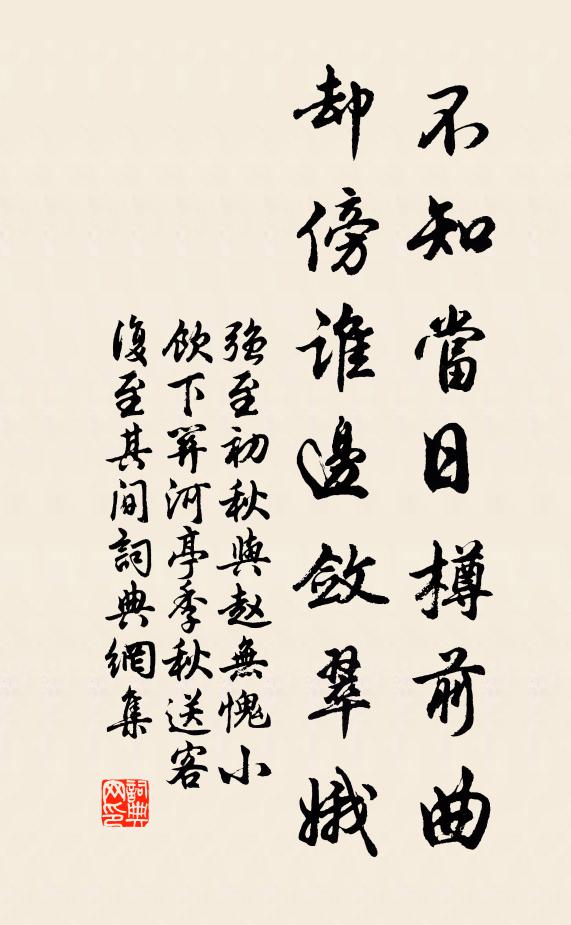 不知當日樽前曲
却傍誰邊斂翠娥
強至初秋與赵無愧小
飲下羿河亭季秋送客
復至其间詞典網集
詞典网印